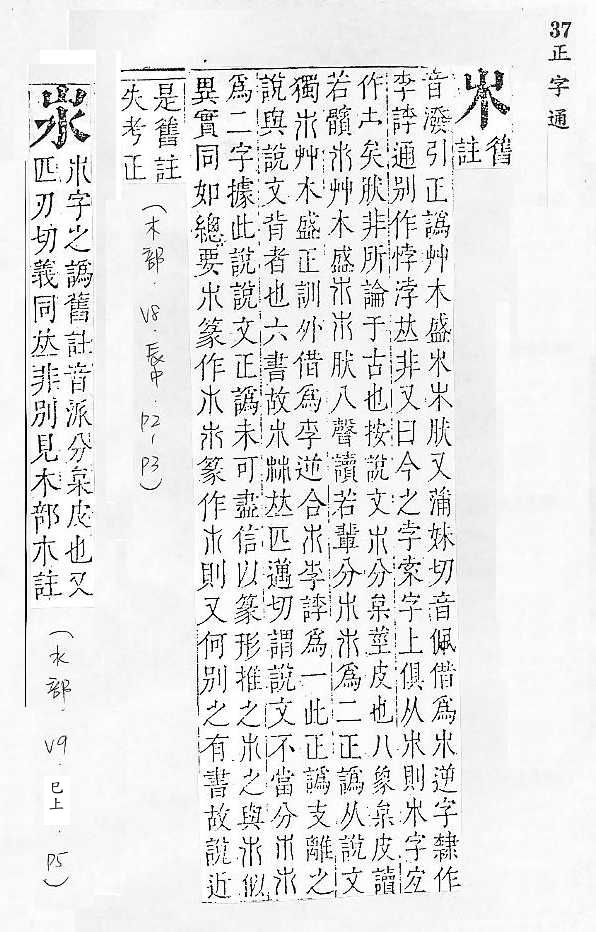 37 正字通
𣎵 舊註
音潑引正譌艸木盛𣎵𣎵肰又蒲妹切音佩借爲𣎵逆字隸作
孛誖通别作悖浡𠀤非又曰今之字索字上俱从𣎵則𣎵字宐
作㞢矣肰非所論于古也按說文𣎳分枲莖皮也八象枲皮讀
若髕𣎵艸木盛𣎵𣎵肰八聲讀若輩分𣎳𣎵爲二正譌从說文
獨𣎵艸木盛正訓外借爲孛逆合𣎵孛誖爲一此正譌支離之
說與說文背者也六書故𣎳𣏟𠀤匹邁切謂說文不當分𣎳𣎵
爲二字據此說說文正譌未可盡信以篆形推之𣎳之與𣎵似
異實同如總要𣎳篆作𣎳𣎵篆作𣎵則又何别之有書故說近
是舊註
失考正
(木部.V8.辰中.P2-P3)
𣎳字之譌舊註音派分枲皮也又
匹刃切義同𠀤非别見木部𣎳註
(水部.V9.巳上.P5)